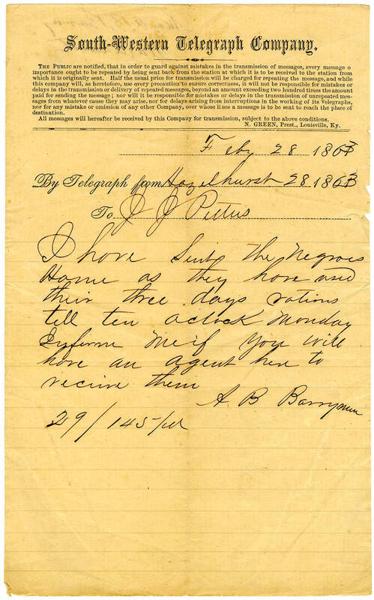 South-Western Telegraph Company.
THE PUBLIC are notified, that in order to guard against mistakes in the transmission of messages, every message of
importance ought to be repeated by being sent back from the station at which it is to be received to the station from
which it is originally sent. Half the usual price for transmission will be charged for repeating the message, and while
this company will, as heretofore, use every precaution to ensure correctness, it will not be responsible for mistakes or
delays in the transmission or delivery of repeated messages, beyond an amount exceeding two hundred times the amount
paid for sending the message; nor will it be responsible for mistakes or delays in the transmission of unrepeated mes-
sages from whatever cause they may arise, nor for delays arising from interruptions in the working of its Telegraphs,
nor for any mistake or omission of any other Company, over whose lines a message is to be sent to reach the place of
destination.
All messages will hereafter be received by this Company for transmission, subject to the above conditions.
N. GREEN, Prest., Louisville, Ky.
Feby 28 1863
By Telegraph from Hazelhurst 28 1863
To J J Pettus
I have sent the Negroes
Home as they have used
their three days rations
till ten oclock Monday
Informe me if you will
have an agent here to
receive them
A B Barryman
29/145/